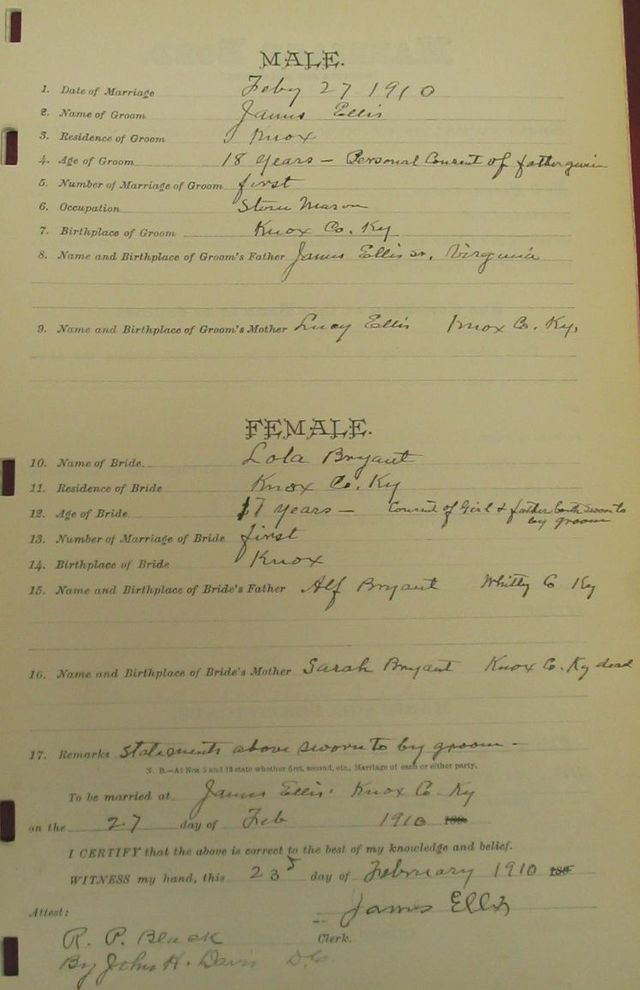 MALE.
1. Date of Marriage Feby 27 1910
2. Name of Groom James Ellis
3. Residence of Groom Knox
4. Age of Groom 18 years — Personal Consent of father given
5. Number of Marriage of Groom first
6. Occupation Stone Mason
7. Birthplace of Groom Knox Co. Ky
8. Name and Birthplace of Groom's Father James Ellis Sr. Virginia
9. Name and Birthplace of Groom's Mother Lucy Ellis Knox Co. Ky.
FEMALE.
10. Name of Bride Lola Bryant
11. Residence of Bride Knox Co. Ky
12. Age of Bride 17 years — Consent of Girl & father both sworn to
by groom
13. Number of Marriage of Bride first
14. Birthplace of Bride Knox
15. Name and Birthplace of Bride's Father Alf Bryant Whitly Co Ky
16. Name and Birthplace of Bride's Mother Sarah Bryant Knox Co. Ky dead
17. Remarks Statements above sworn to by groom —
N. B.—At Nos 5 and 13 state whether first, second, etc., Marriage of each or either party.
To be married at James Ellis' Knox Co Ky
on the 27 day of Feb 1910
I CERTIFY that the above is correct to the best of my knowledge and belief.
WITNESS my hand, this 23 day of February 1910
James Ellis
Attest:
R. P. Black Clerk.
By John H. Davis D.C.